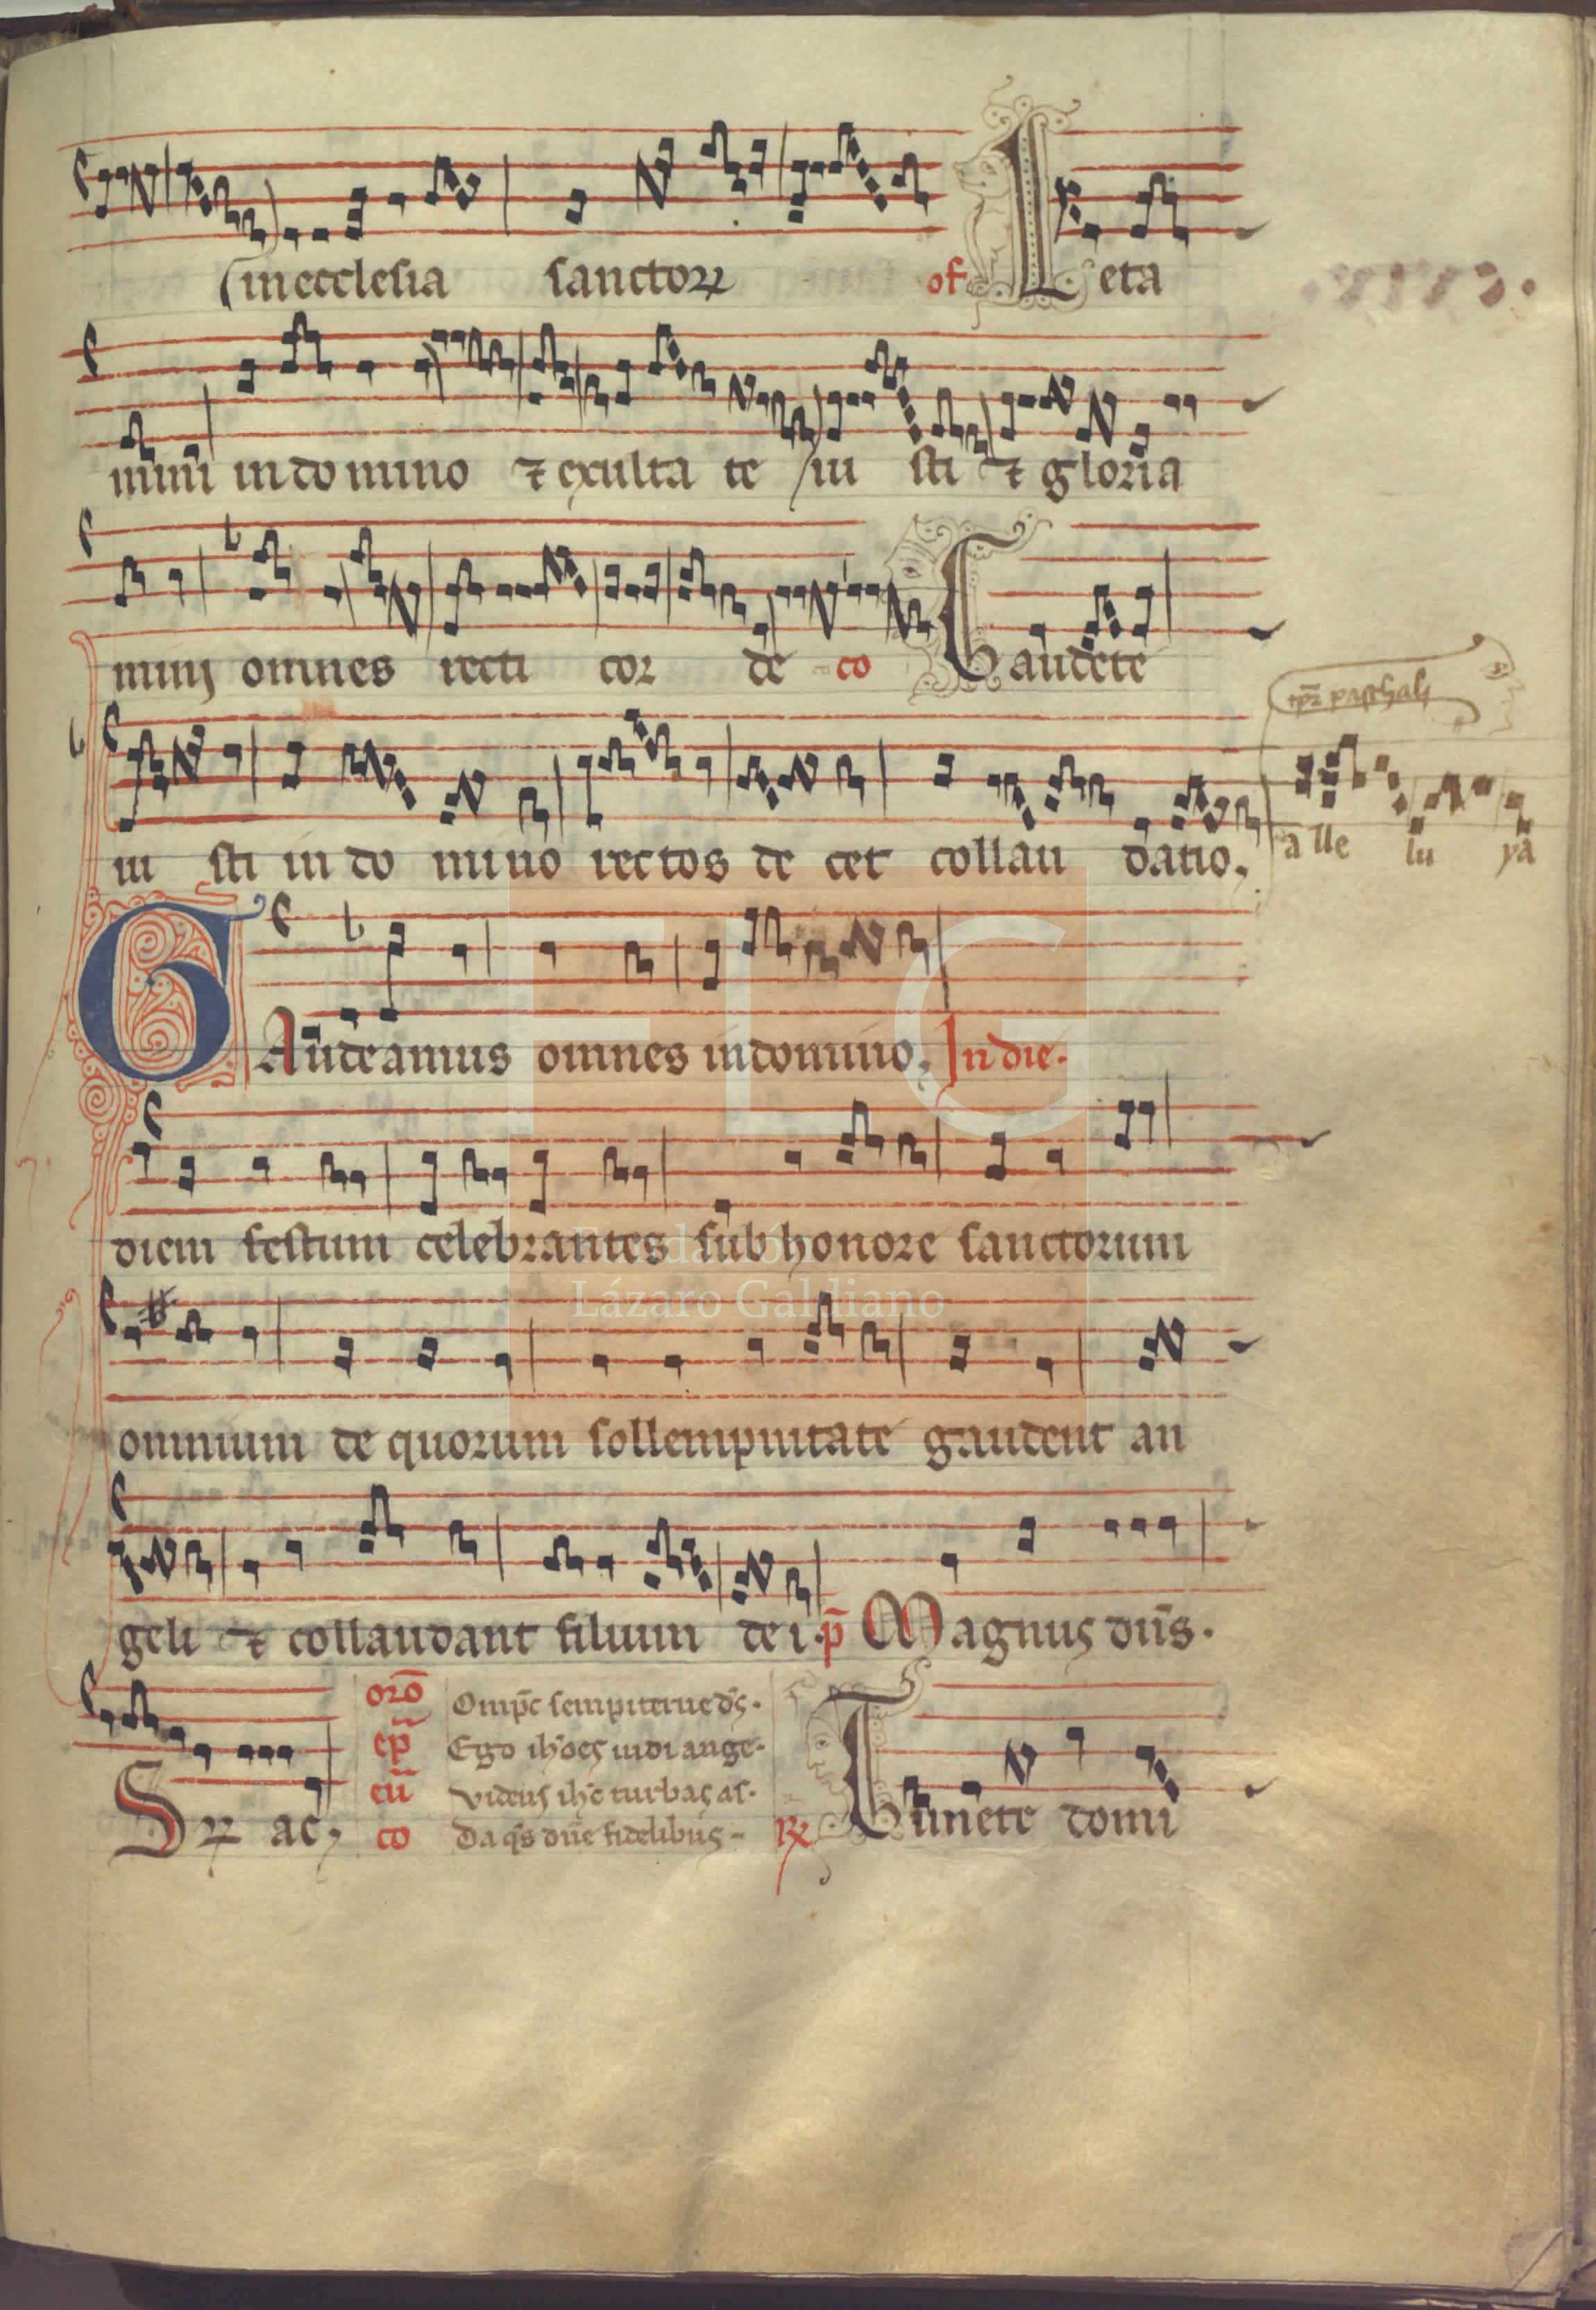 in ecclesia sanctoꝝ of Leta
mini in do mino ⁊ exulta te iu sti ⁊ gloria
mini omnes recti cor de co Gaudete
tp̄r paschali
iu sti in do mi no rectos de cet collau datio.
a lle lu ya
GAudeamus omnes in domino. In die.
diem festum celebrantes sub honore sanctorum
Fundación
Lázaro Galdiano
omnium de quorum sollempnitate gaudent an
geli ⁊ collaudant filium de i. p̄ Magnus dn̄s.
oro̅ Omp̄c sempiterne ds̄.
ep̄ Ego ioh̄es uidi ange-
eu̅ videns ih̄c turbas as-
Sꝝ ac, co Da q̄s dn̄e fidelibus- ℟ Timete domi